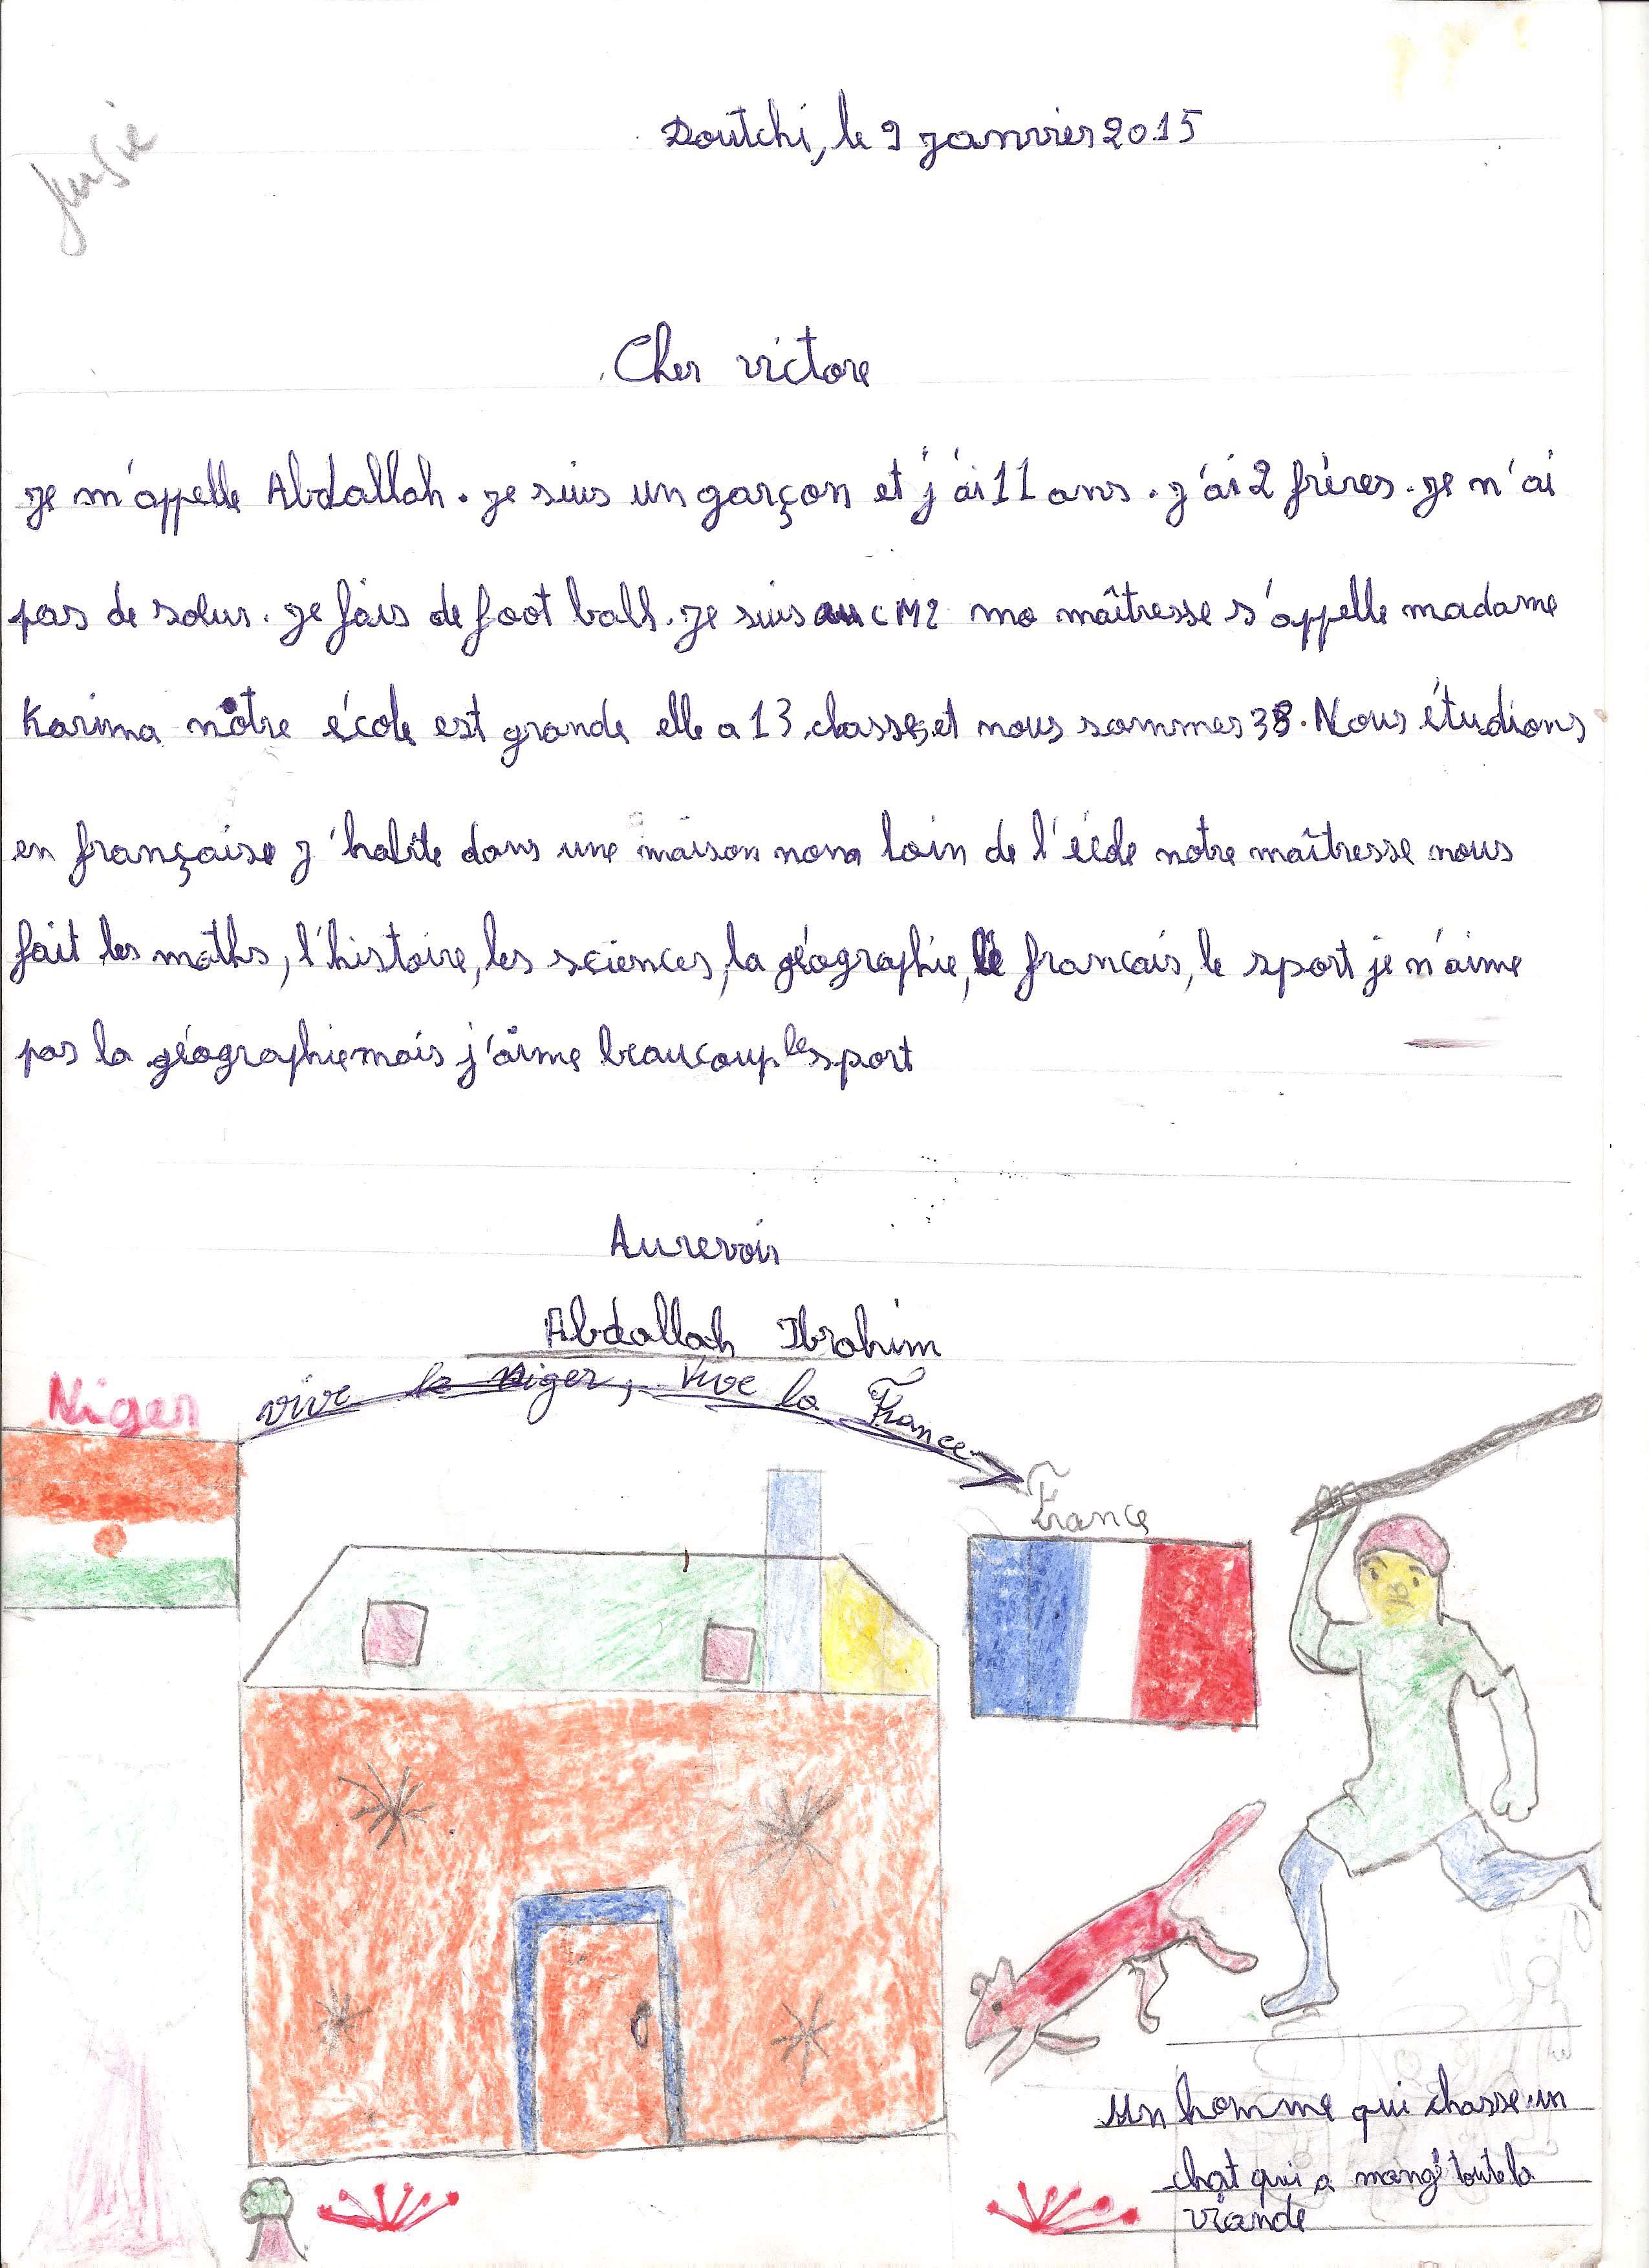 Doutchi, le 9 janvier 2015
Cher victore
je m'appelle Abdallah. je suis un garçon et j'ai 11 ans. j'ai 2 frères. je n'ai
pas de sœur. je fais de foot ball. je suis au CM2 ma maîtresse s'appelle madame
Karima notre école est grande elle a 13 classes, et nous sommes 38. Nous étudions
en française j'habite dans une maison non loin de l' notre maîtresse nous
fait les maths, l'histoire, les sciences, la géographie, le francais, le sport je n'aime
pas la géographie mais j'aime beaucoup le sport
Aurevoir
Abdallah Ibrahim
vive le Niger, Vive la France
Niger
France
Un homme qui chasse un
chat qui a mangé toute la
viande